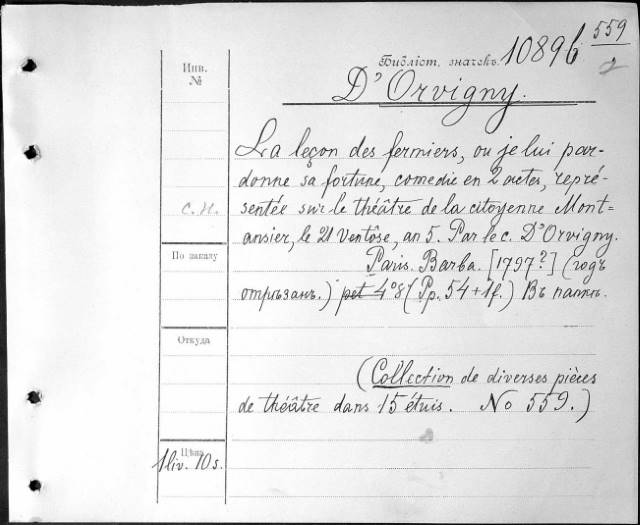 559
2
Библіот. значекъ. 10896
Инв.
№
D'Orvigny.
La leçon des fermiers, ou je lui par-
donne sa fortune, comedie en 2 actes, repré-
С. Н.
sentée sur le théâtre de la citoyenne Mont=
ansier, le 21 Ventôse, an 5. Par le c. D'Orvigny.
По заказу
Paris. Barba. [1797?] (годъ
отрѣзанъ.) pet 4° 8 (Pp. 54 + 1f.) Въ папкѣ.
Откуда
(Collection de diverses pièces
de théâtre dans 15 étuis. No 559.)
Цѣна
1 liv. 10 s.